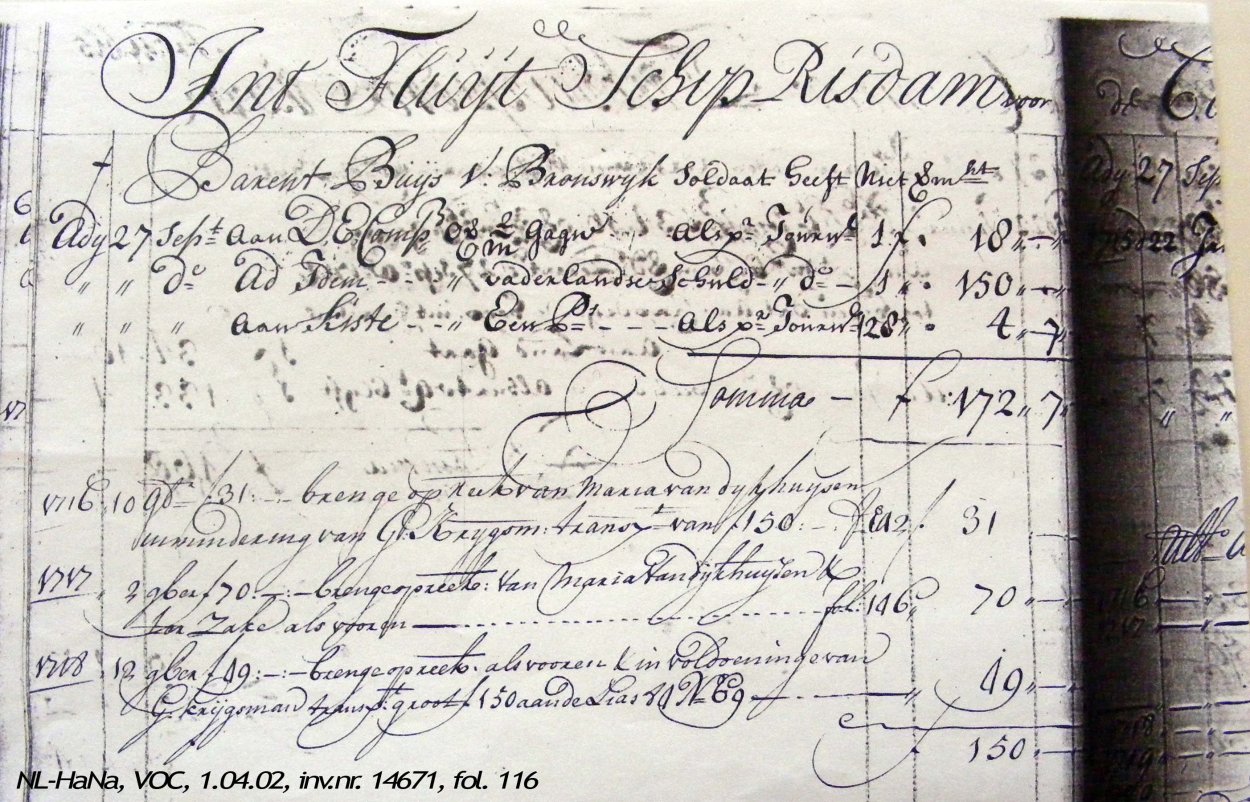 Int Fluÿt Schip Risdam voor
Barent Buÿs V: Bronswyk Soldaat heeft Niet
Ady 27 Sept aan D E Comp 2 m gagie als pr Journl 1 f 18 " —
" " do Ad Idem " vaderlandse Schuld " do 1 " 150 " —
" " " aan kiste " Een Ps als pr Journl 128 " 4 " 7
Somma — f 172 " 7
1716 10 f 31:—:— brenge op reek van Maria van dykhuysen
in mindering van G: Krygsm: transpt van f 150:— f 31
1717 2 gber f 70:—:— brenge op reek: Van Maria Van dykhuysen
ter Zake als vooren — fol: 146 " 70 " —
1718 12 gber f 49:—:— brenge op reek: als vooren in voldoeninge van
G: Krijgsman transpt: groot f 150 aan de Lias No 69 — " 49 " —
150 " —
de
Ady 27 Sep
1715 d 22
1716
1717
1718
1719
NL-HaNa, VOC, 1.04.02, inv.nr. 14671, fol. 116